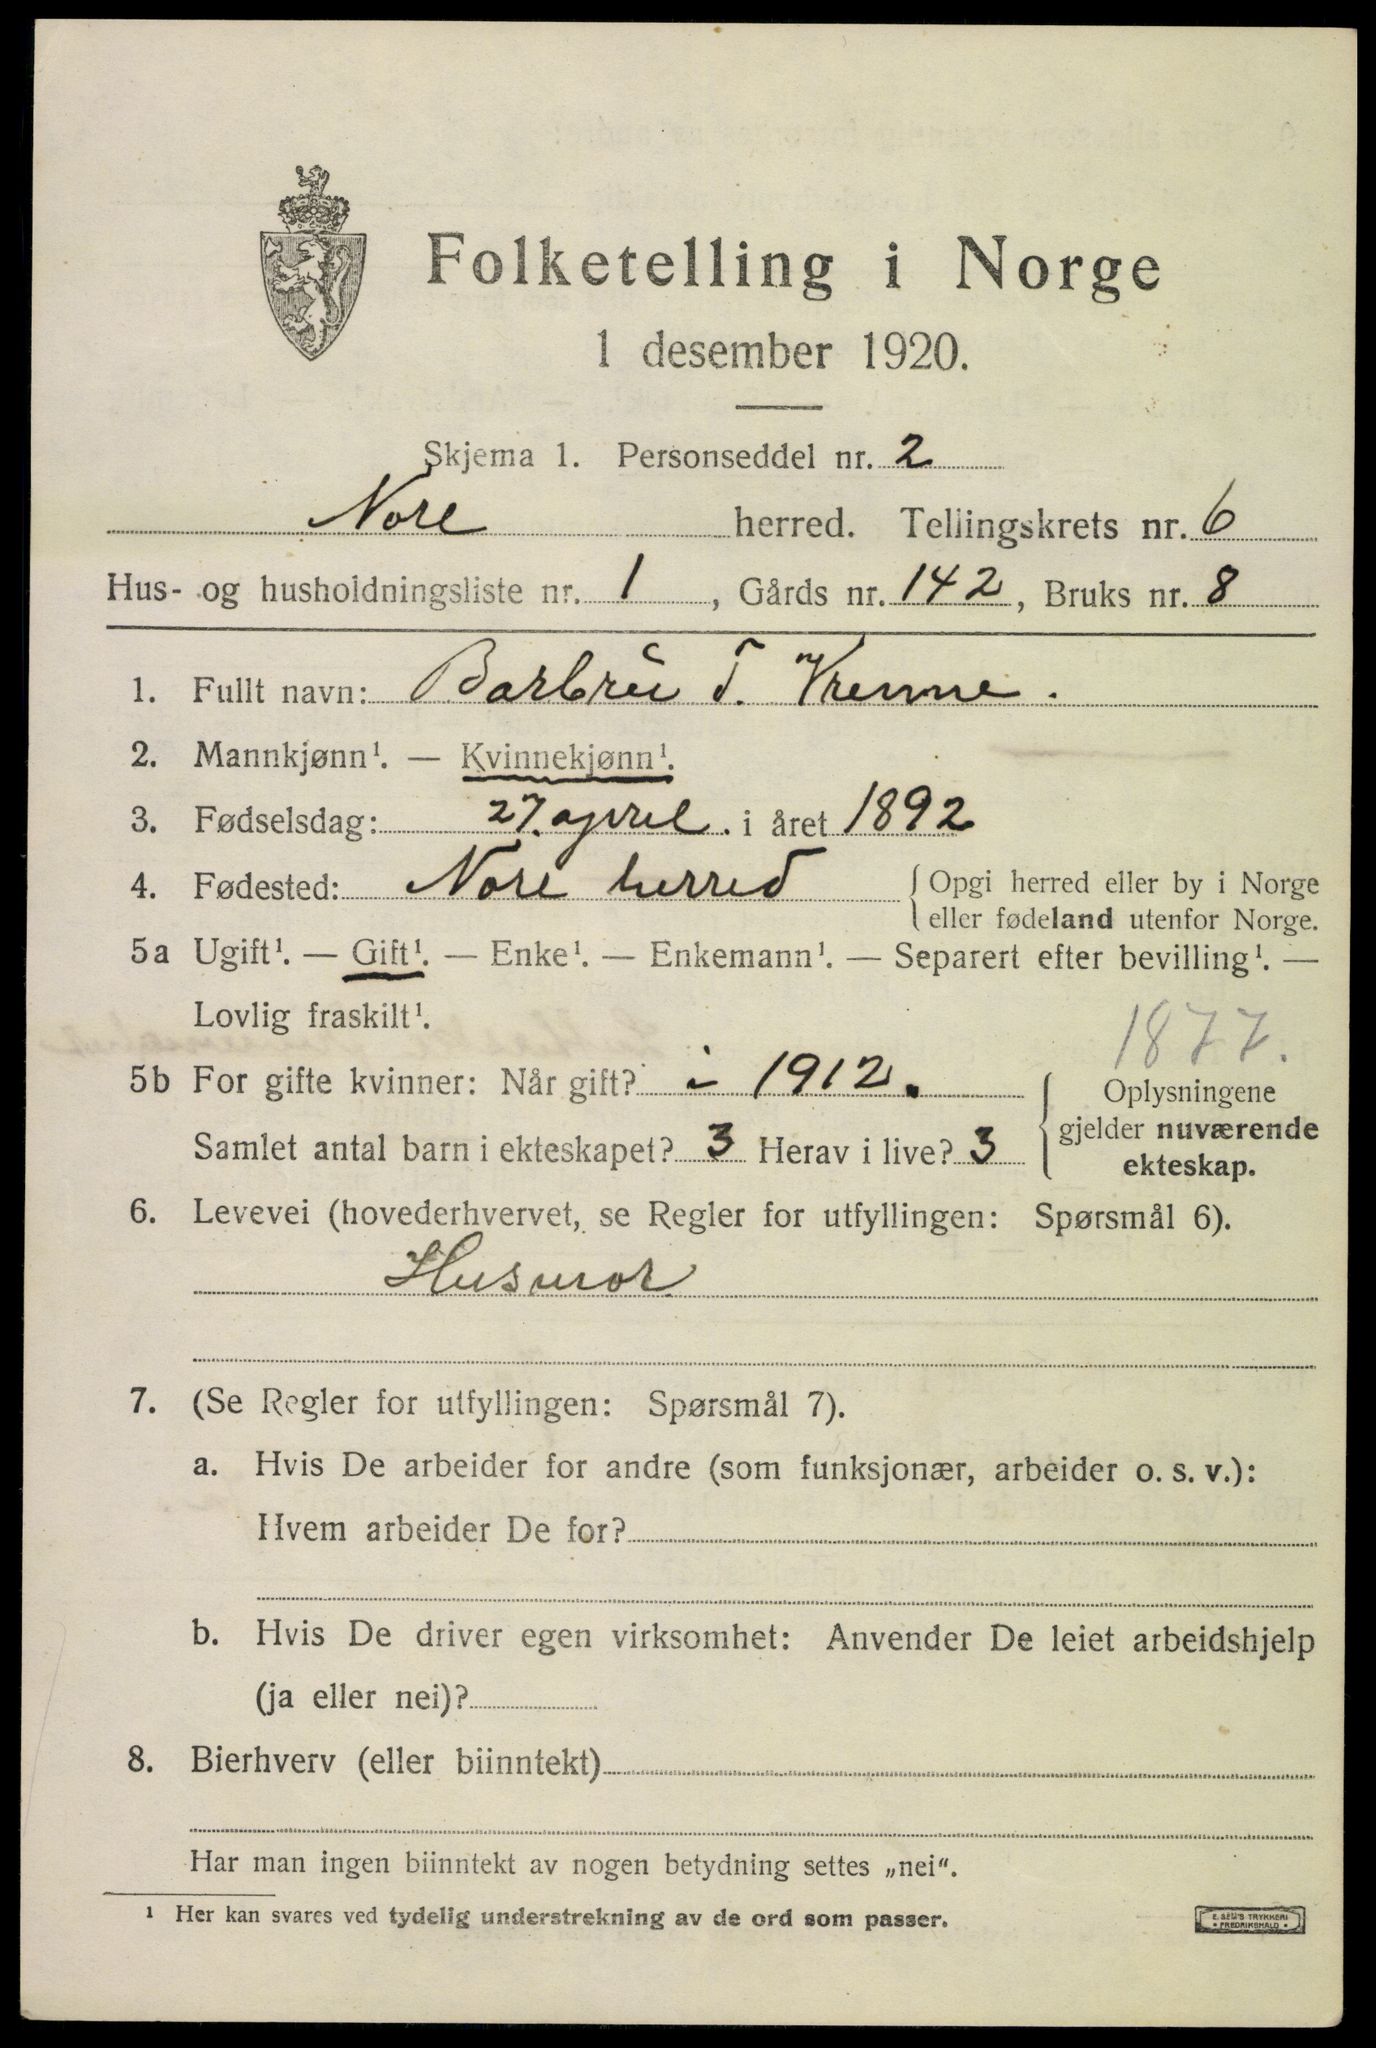 Folketelling i Norge
1 desember 1920.
Skjema 1. Personseddel nr. 2
Nore herred. Tellingskrets nr. 6
Hus- og husholdningsliste nr. 1, Gårds nr. 142, Bruks nr. 8
1. Fullt navn: T. Vrenne.
2. Mannkjønn¹. — Kvinnekjønn¹.
3. Fødselsdag: 27. april. i året 1892
4. Fødested: Nore herred { Opgi herred eller by i Norge
eller fødeland utenfor Norge.
5a Ugift¹. — Gift¹. — Enke¹. — Enkemann¹. — Separert efter bevilling¹. —
Lovlig fraskilt¹.
1877.
5b For gifte kvinner: Når gift? i 1912. { Oplysningene
gjelder nuværende
Samlet antal barn i ekteskapet? 3 Herav i live? 3 ekteskap.
6. Levevei (hovederhvervet, se Regler for utfyllingen: Spørsmål 6).
Husmor
7. (Se Regler for utfyllingen: Spørsmål 7).
a. Hvis De arbeider for andre (som funksjonær, arbeider o. s. v.):
Hvem arbeider De for?
b. Hvis De driver egen virksomhet: Anvender De leiet arbeidshjelp
(ja eller nei)?
8. Bierhverv (eller biinntekt)
Har man ingen biinntekt av nogen betydning settes „nei“.
¹ Her kan svares ved tydelig understrekning av de ord som passer.
E. SEM'S TRYKKERI
• FREDRIKSHALD •